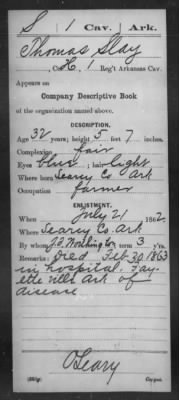 S | 1 Cav. | Ark.
Thomas Slay
, Co. H, 1 Reg't Arkansas Cav.
Appears on
Company Descriptive Book
of the organization named above.
DESCRIPTION.
Age 32 years; height 5 feet 7 inches.
Complexion fair
Eyes blue; hair light
Where born Searcy Co. Ark
Occupation farmer
ENLISTMENT.
When July 21, 1862.
Where Searcy Co. Ark
By whom J.S. Worthington; term 3 y'rs.
Remarks: Died Feb 20 1863
in hospital, Fay-
etteville Ark of
disease
O'Leary
Copyist.